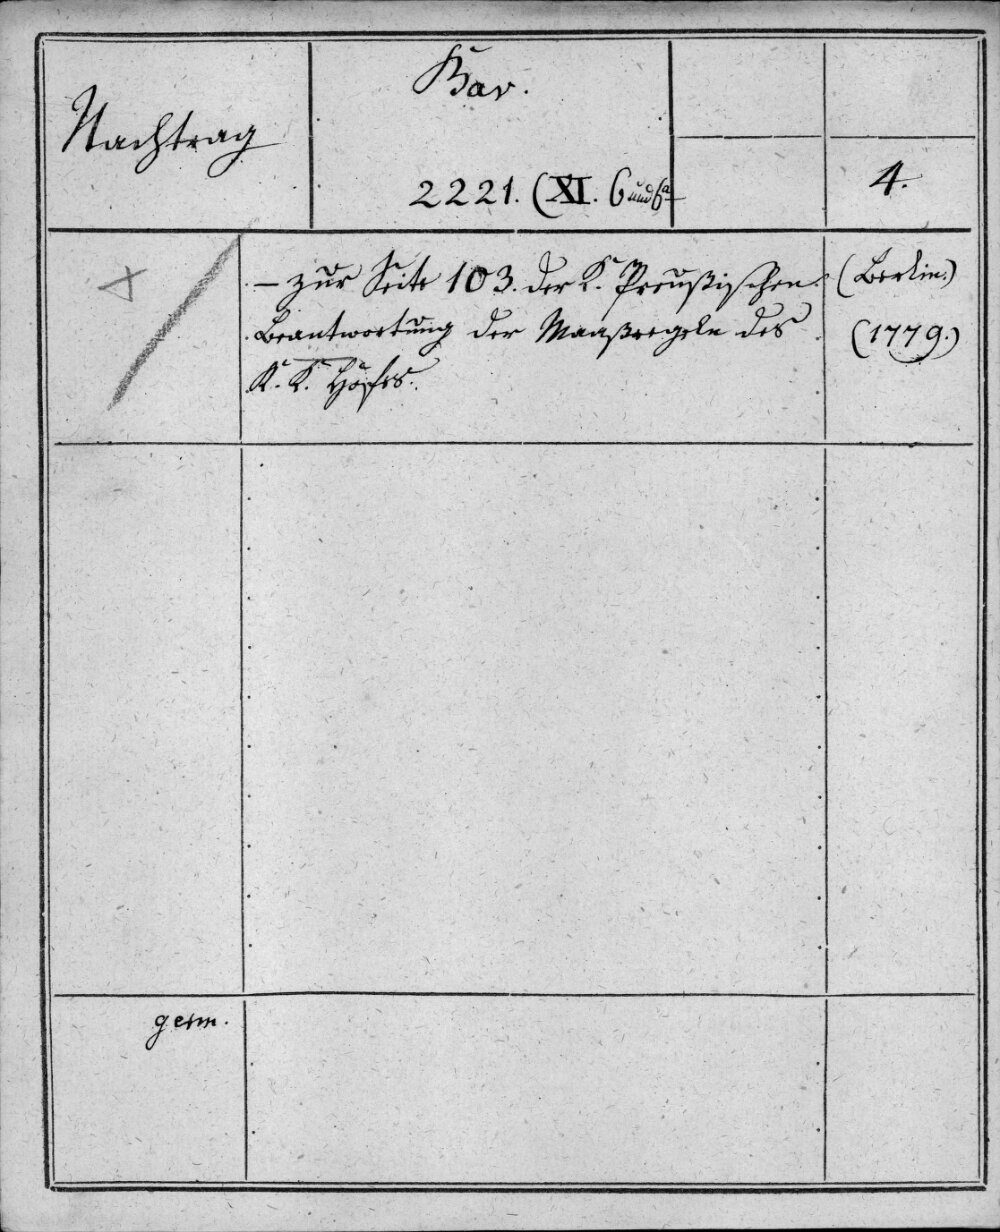 Bav.
Nachtrag
2221. (XI. 6 und 6a
4.
+
– zur Seite 103. der K. Preußischen
Beantwortung der Maaßregeln des
K. K. Hofes.
(Berlin.)
(1779.)
germ.